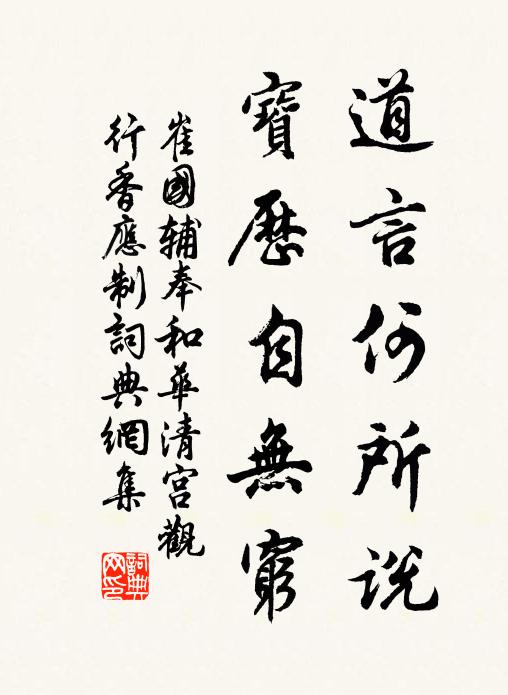 道言何所説
寶歷自無窮
崔國輔奉和華清宮觀
行香應制詞典網集
詞典
网印